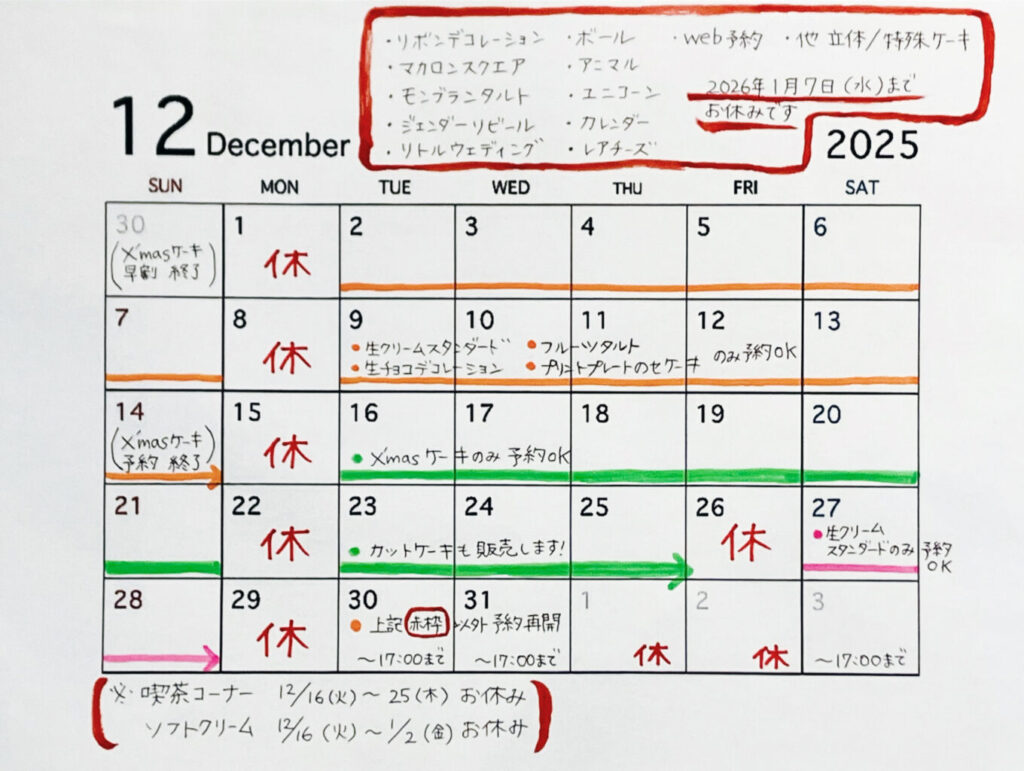 ・リボンデコレーション ・ボール ・web予約 ・他 立体/特殊ケーキ
・マカロンスクエア ・アニマル
・モンブランタルト ・ユニコーン 2026年1月7日(水)まで
・ジェンダーリビール ・カレンダー お休みです
・リトルウェディング ・レアチーズ
12 December 2025
SUN MON TUE WED THU FRI SAT
30 1 2 3 4 5 6
(X'masケーキ 休
早割 終了)
7 8 9 10 11 12 13
休 ●生クリームスタンダード ●フルーツタルト のみ予約OK
●生チョコデコレーション ●プリントプレートのせケーキ
14 15 16 17 18 19 20
(X'masケーキ 休 ●X'masケーキのみ 予約OK
予約 終了)
21 22 23 24 25 26 27
休 ●カットケーキも販売します! 休 ●生クリーム
スタンダードのみ予約
OK
28 29 30 31 1 2 3
休 ●上記 赤枠 以外 予約再開
〜17:00まで 〜17:00まで 休 休 〜17:00まで
(※・喫茶コーナー 12/16(火)〜25(木) お休み
ソフトクリーム 12/16(火)〜1/2(金) お休み)